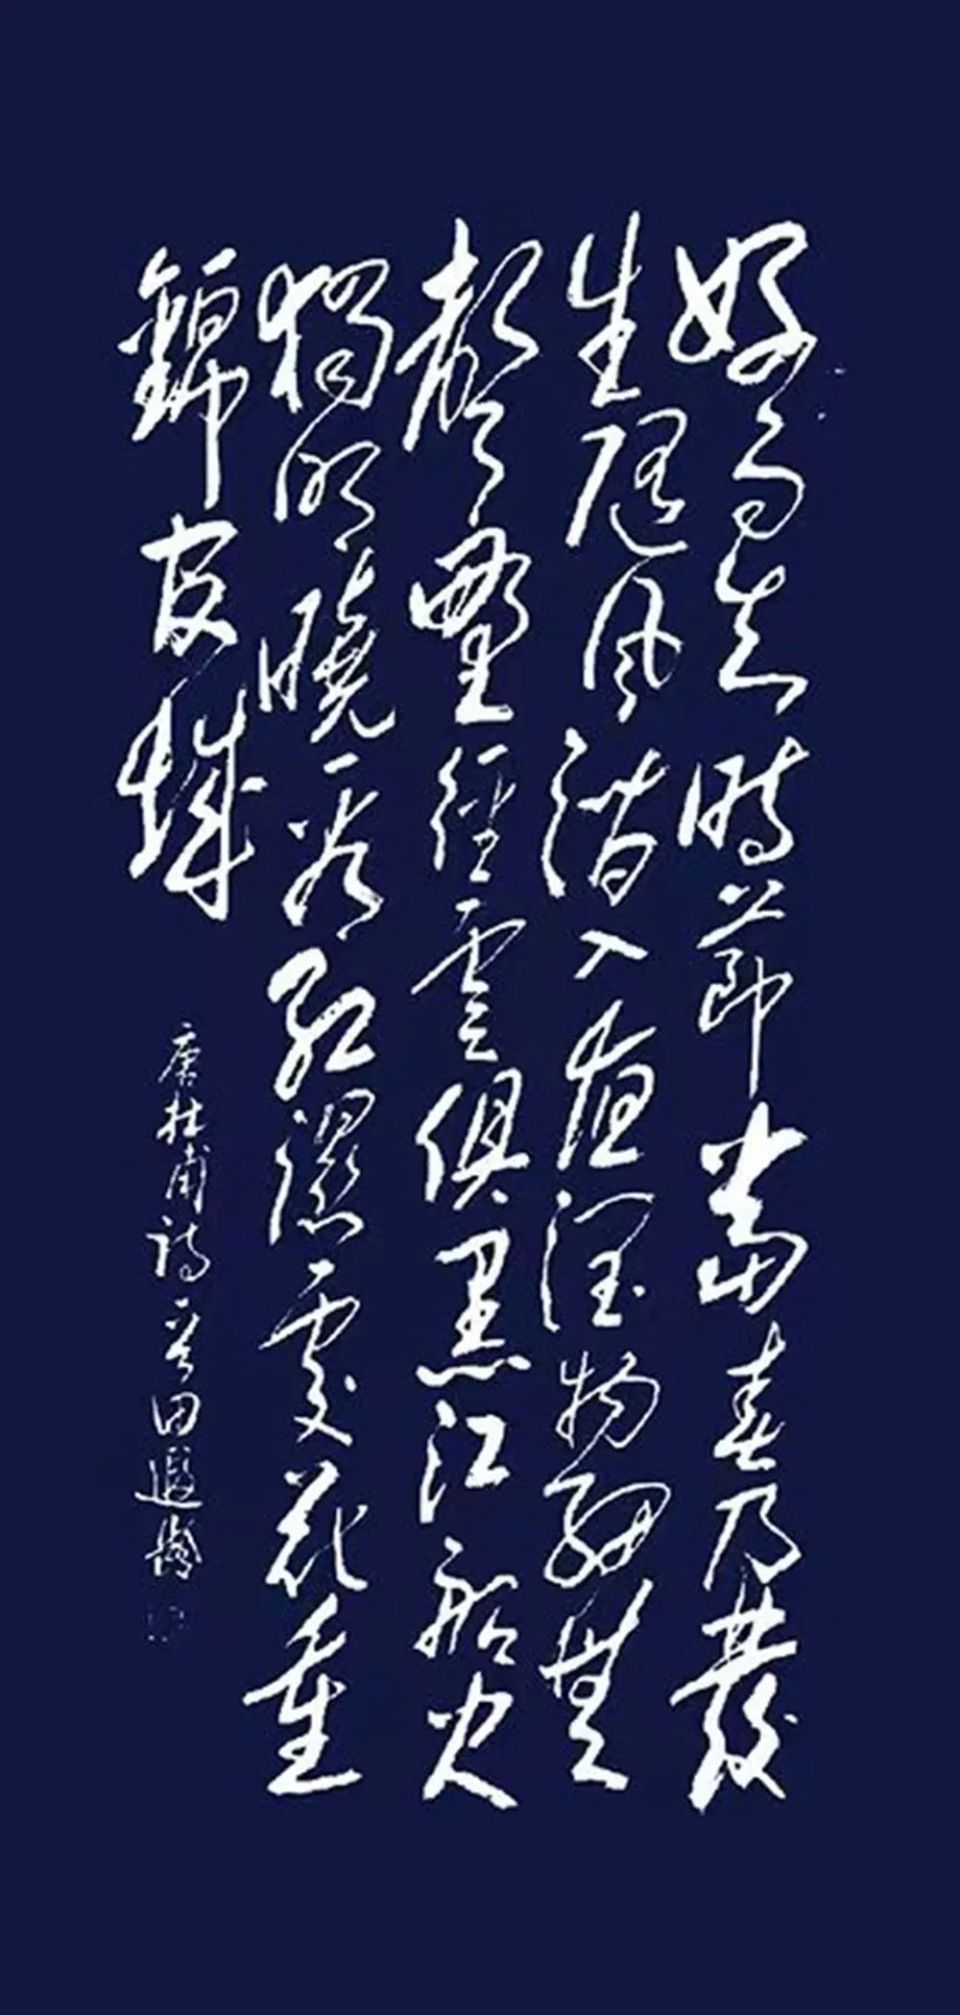 好雨知時節當春乃發
生隨風潛入夜潤物細無
聲野徑雲俱黑江船火
獨明曉看紅濕處花重
錦官城
唐杜甫詩一首田遐齡